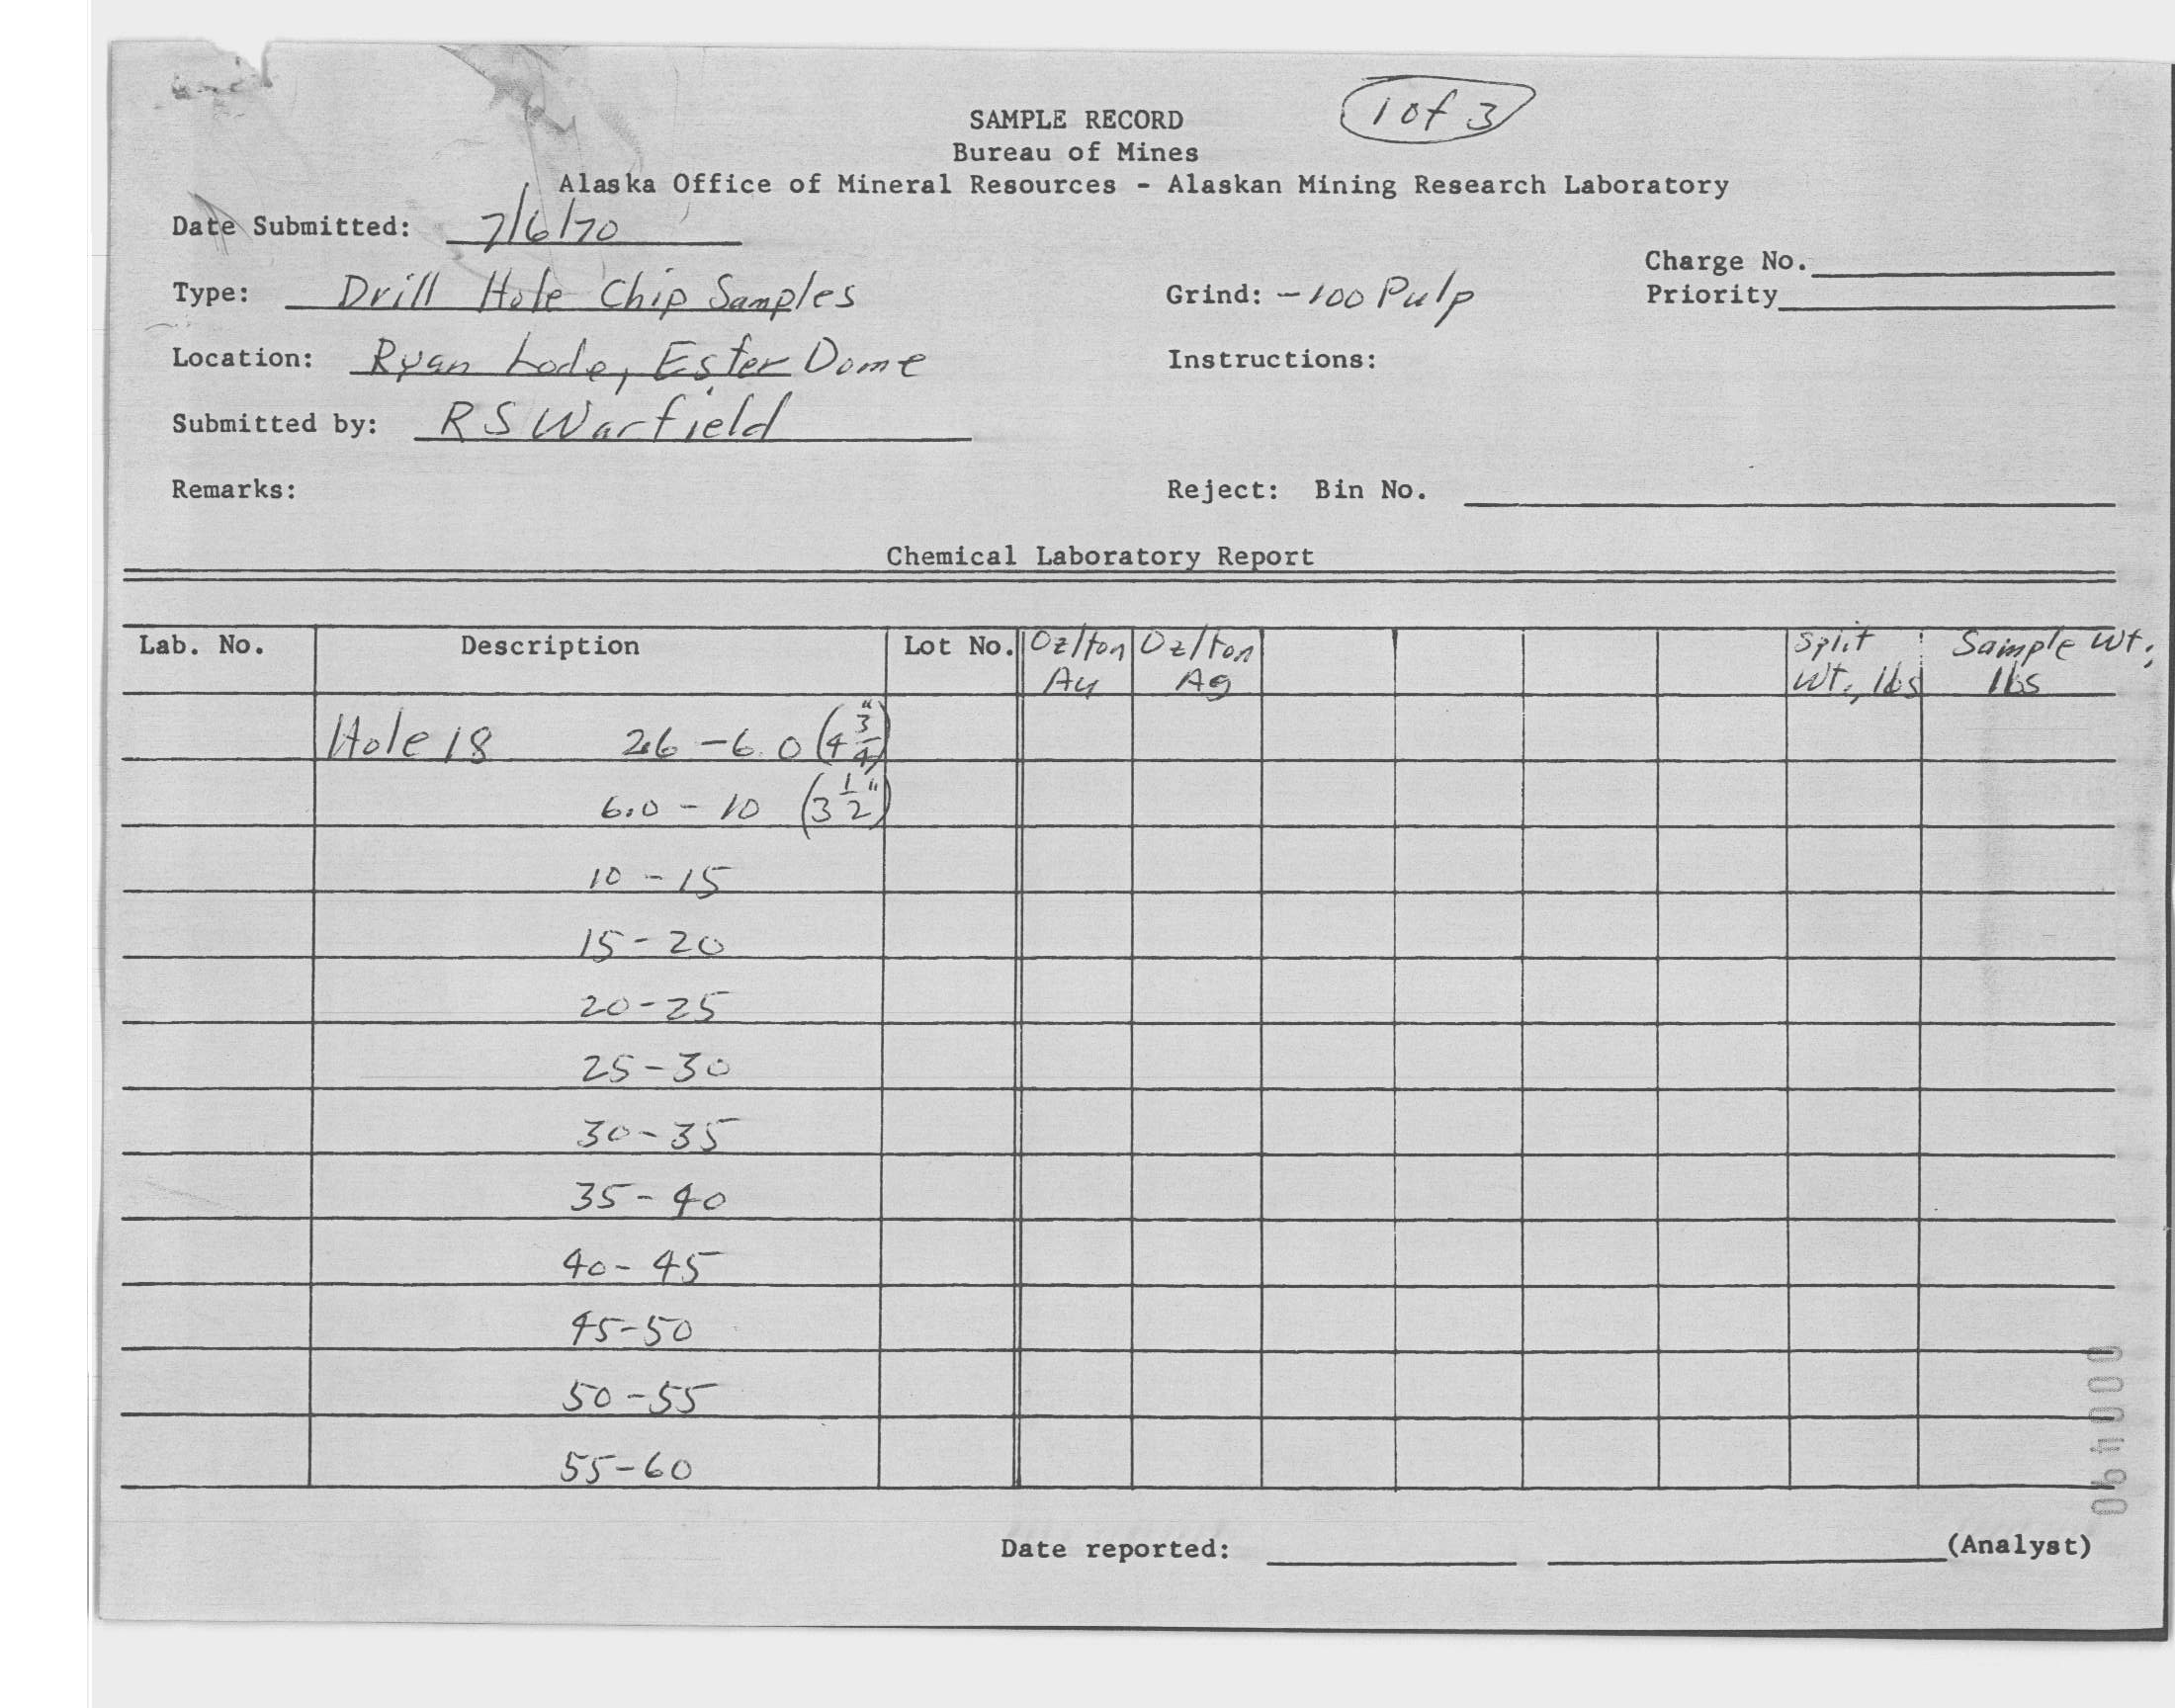 1 of 3
SAMPLE RECORD
Bureau of Mines
Alaska Office of Mineral Resources - Alaskan Mining Research Laboratory
Date Submitted: 7/6/70
Charge No.
Type: Drill Hole Chip Samples Grind: -100 Pulp Priority
Location: Ryan Lode, Ester Dome Instructions:
Submitted by: R S Warfield
Remarks: Reject: Bin No.
Chemical Laboratory Report
Lab. No. Description Lot No. Oz/ton Au Oz/ton Ag Split Wt., lbs Sample Wt., lbs
Hole 18 2.6 - 6.0 (4 3/4")
6.0 - 10 (3 1/2")
10 - 15
15 - 20
20 - 25
25 - 30
30 - 35
35 - 40
40 - 45
45 - 50
50 - 55
55 - 60
Date reported: (Analyst)